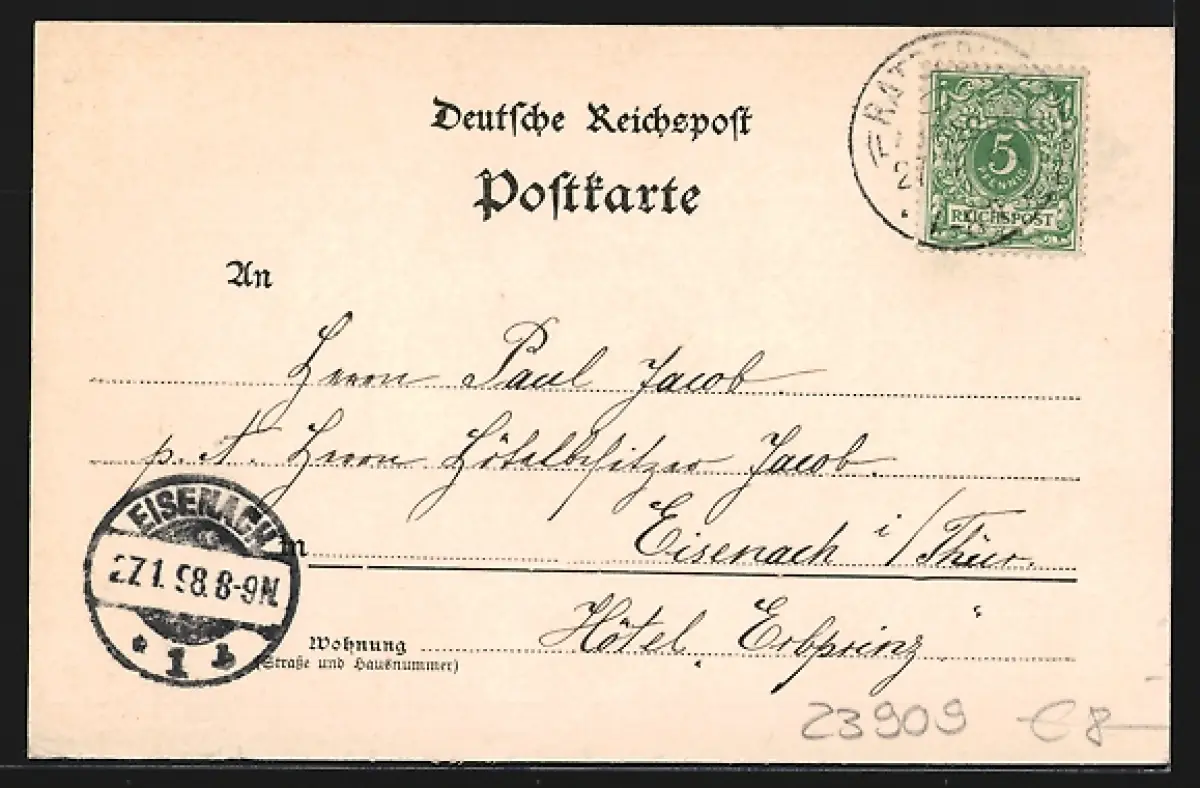 Deutsche Reichspost
Postkarte
5
PFENNIG
REICHSPOST
An
Herrn Paul Jacob
p. A. Herrn Hôtelbesitzer Jacob.
EISENACH
27.1.98.8-9N.
* 1 b
in Eisenach i/Thür.
Wohnung Hôtel „Erbprinz“
(Straße und Hausnummer)
23909 € 8